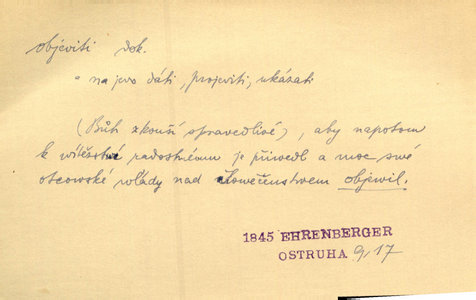 objeviti dok.
na jevo dáti, projeviti, ukázati
(Bůh zkouší spravedlivé), aby napotom
k wítězstwí radostnému je přiwedl a moc swé
otcowské wlády nad člowěčenstwem objewil.
1845 EHRENBERGER
OSTRUHA 9,17